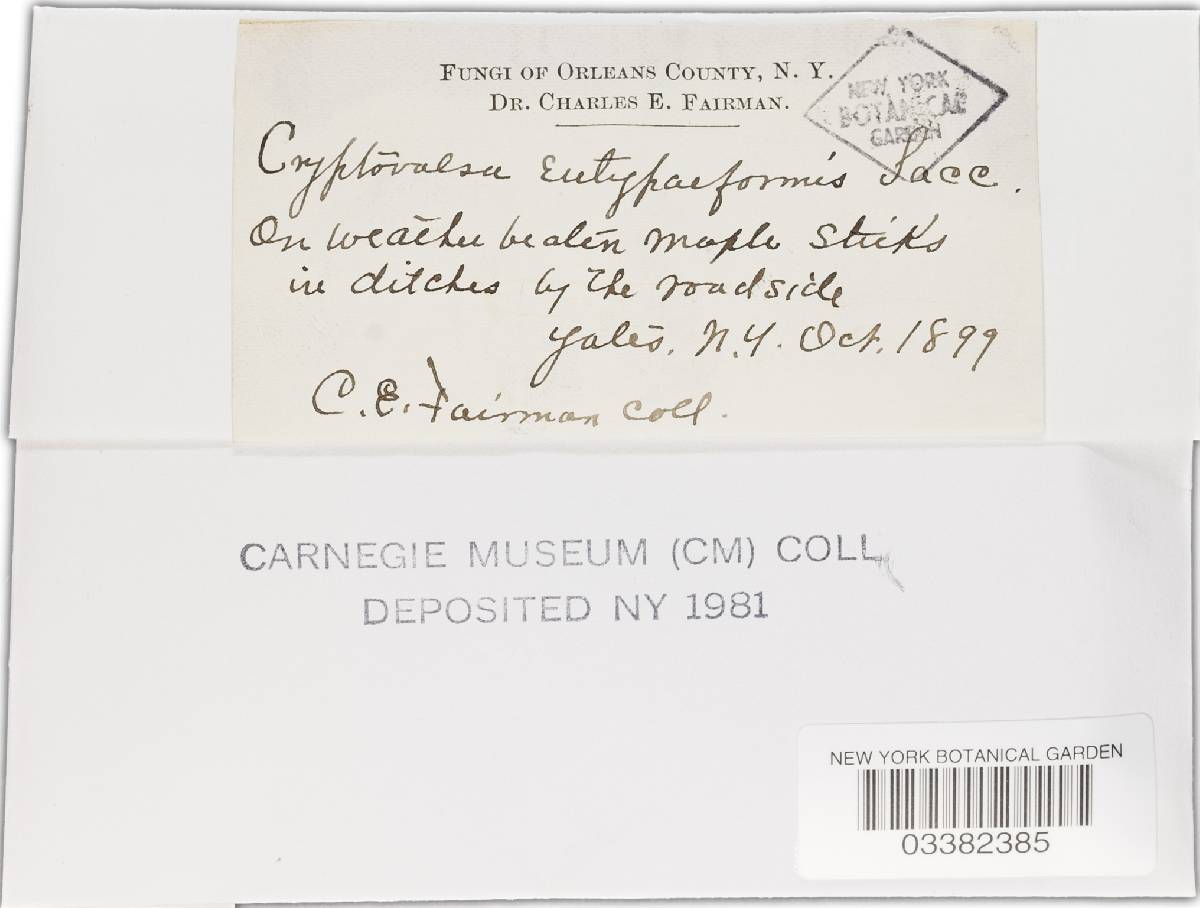 FUNGI OF ORLEANS COUNTY, N. Y.
DR. CHARLES E. FAIRMAN.
NEW YORK
BOTANICAL
GARDEN
Cryptovalsa Eutypaeformis Sacc.
On weather beaten maple sticks
in ditches by the roadside
Yates, N.Y. Oct. 1899
C. E. Fairman coll.
CARNEGIE MUSEUM (CM) COLL
DEPOSITED NY 1981
NEW YORK BOTANICAL GARDEN
03382385